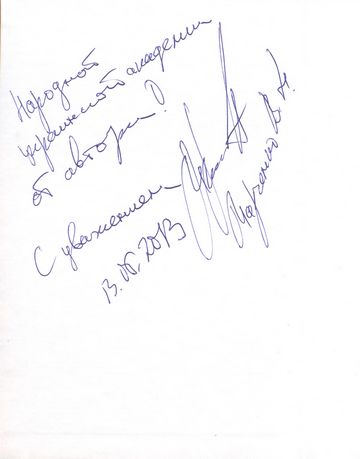 Народной
украинской академии
от автора!
С уважением
13.06.2013
Марченко В. Н.